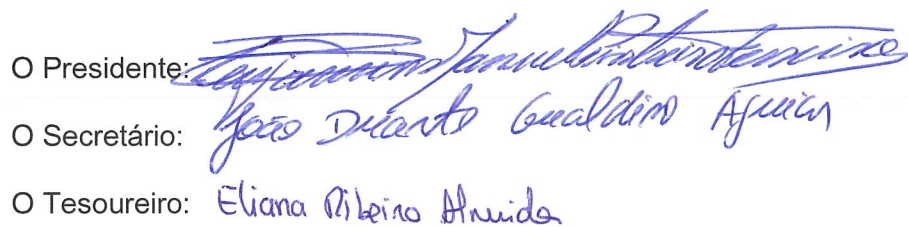 O Presidente: Manuel Pinheiro Ferreira
O Secretário: João Duarte Gualdino Aguiar
O Tesoureiro: Eliana Ribeiro Almeida